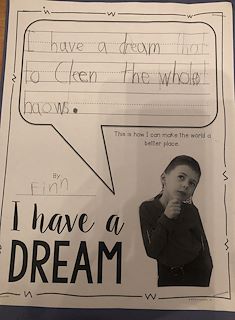 I have a dream that
to Cleen the whole
haows.
This is how I can make the world a
better place.
By
Finn
I have a
DREAM